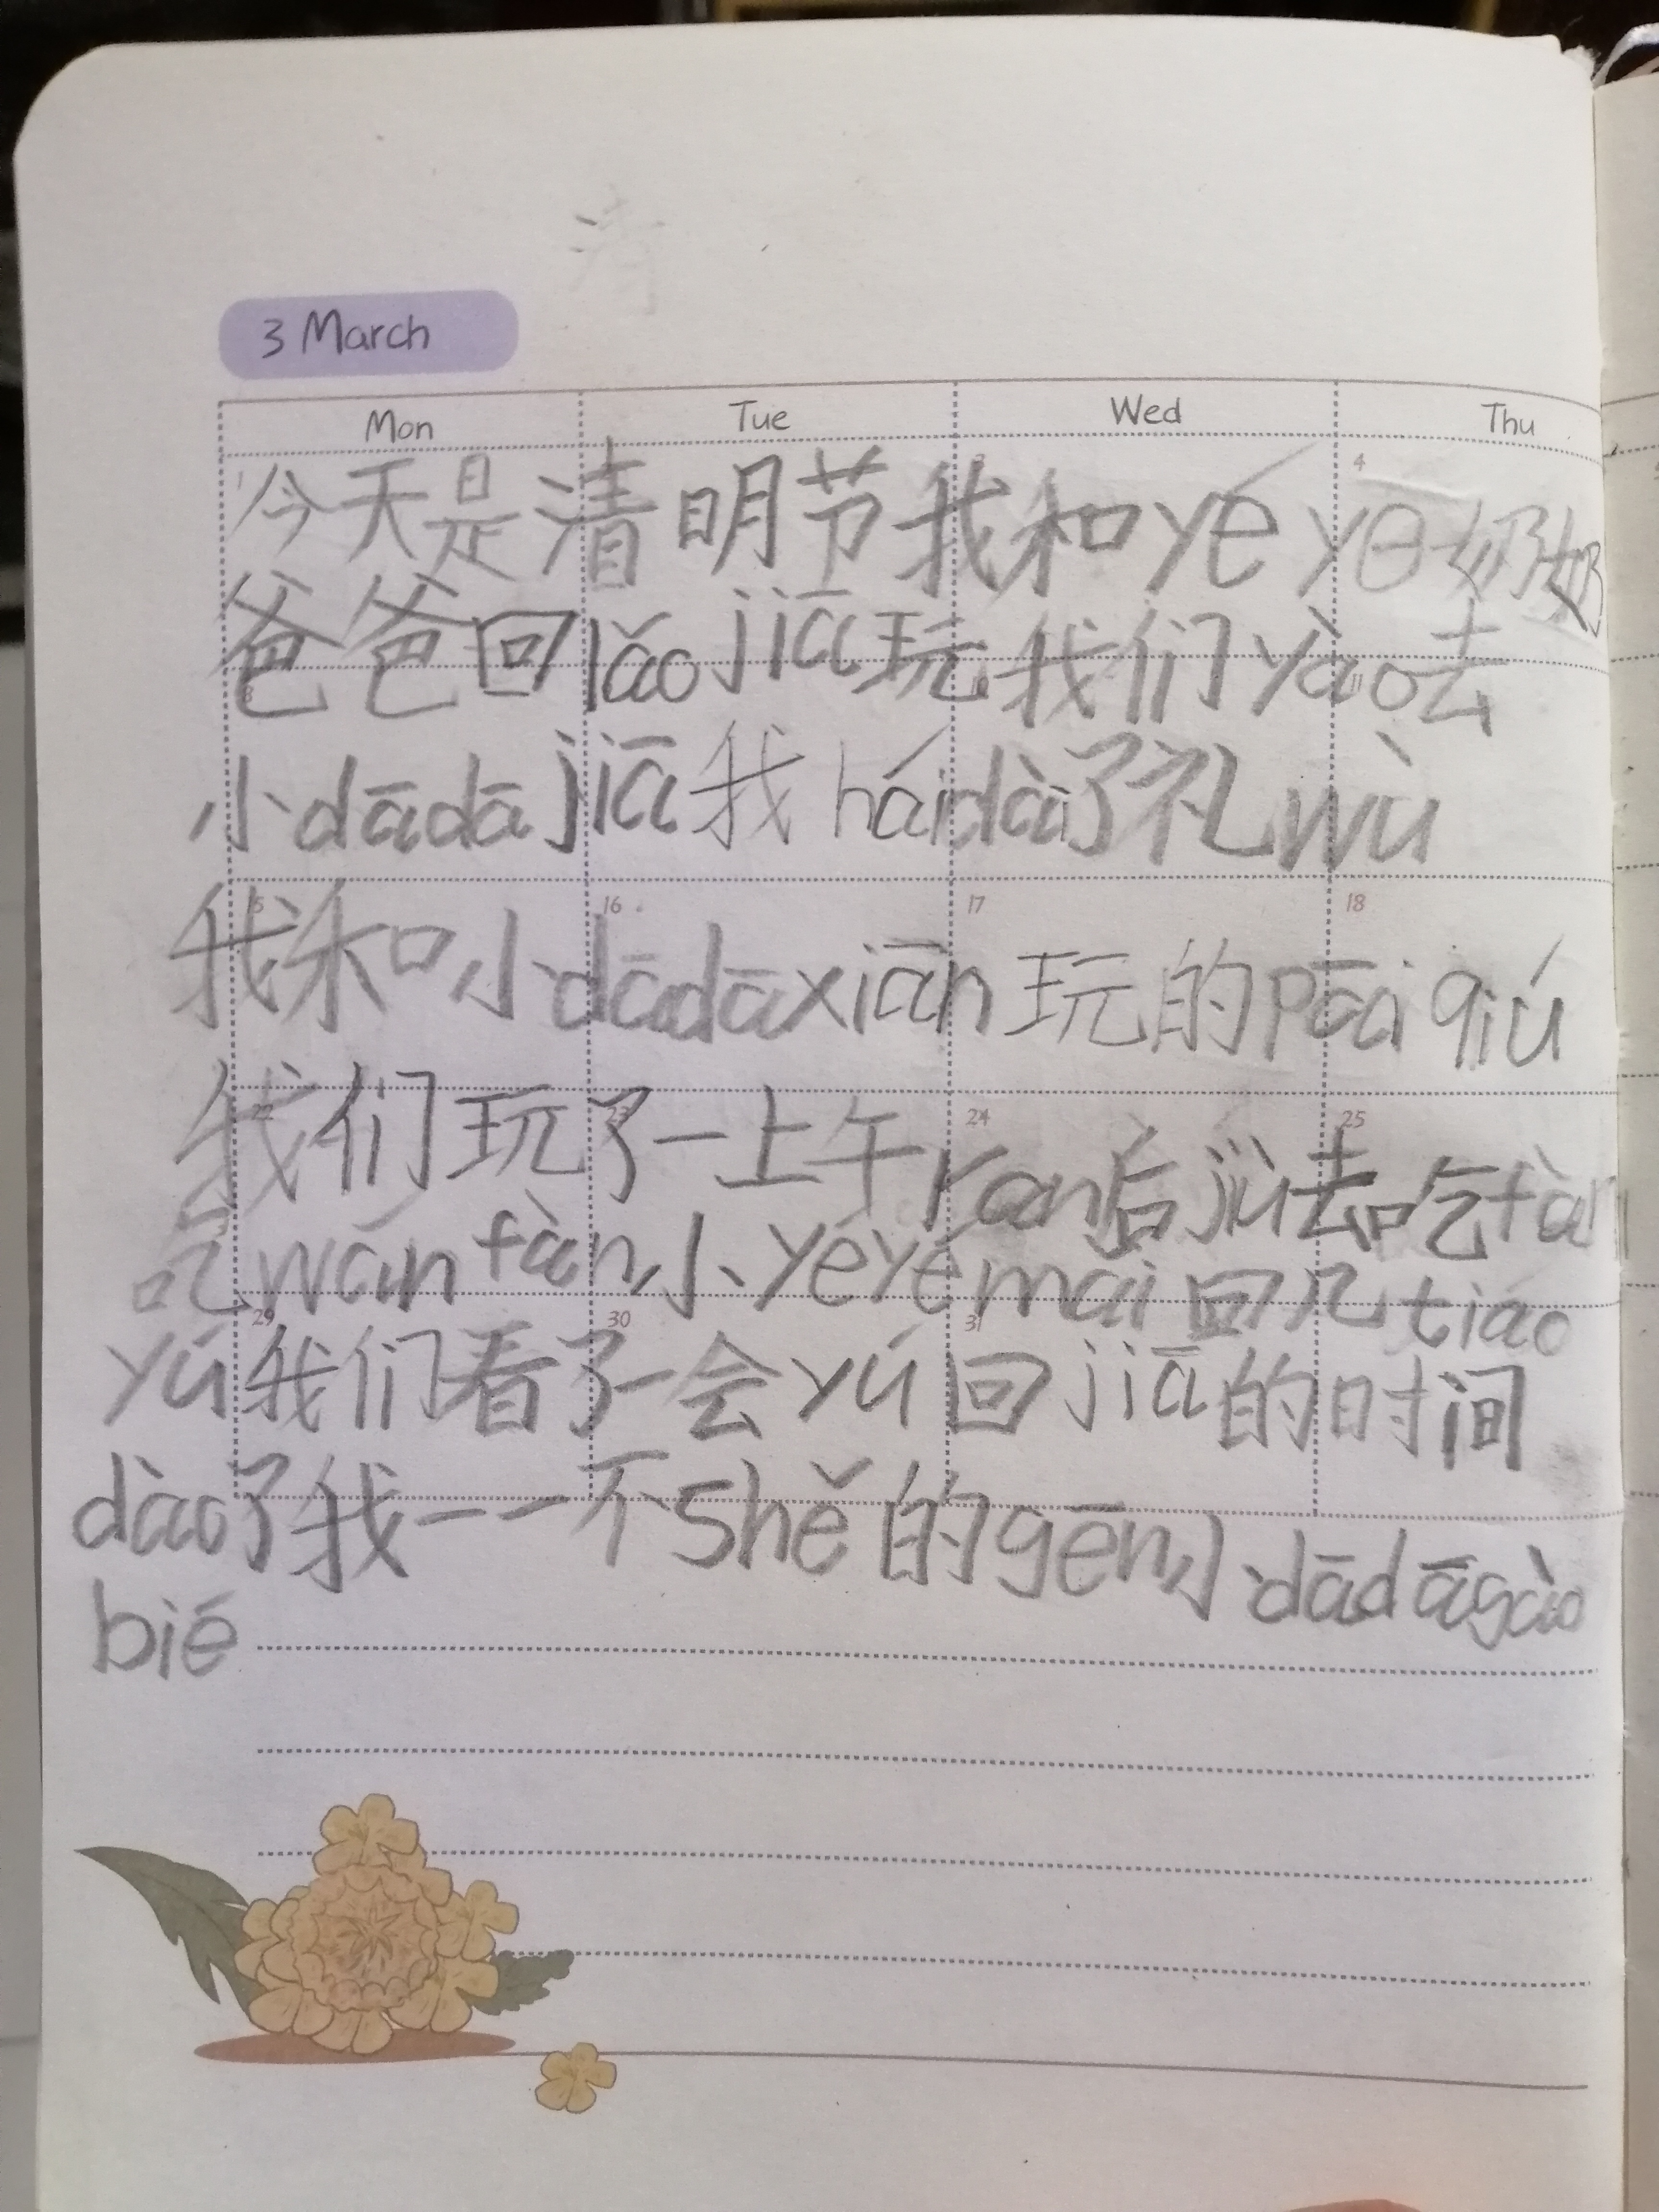 清
3 March
Mon Tue Wed Thu
今天是清明节我和yé ye奶奶
爸爸回lǎo jiā玩我们yào去
小dādā jiā我hái dài了礼wù
我和小dādā xiān玩的pāi qiú
我们玩了一上午ran后jiù去吃fàn
吃wán fàn小yéyé mai回几tiáo
yú我们看了一会yú回jiā的时间
dào了我一一不shě的gēn小dādā gào
bié
1 3 4
8 10 11
15 16 17 18
22 23 24 25
29 30 31